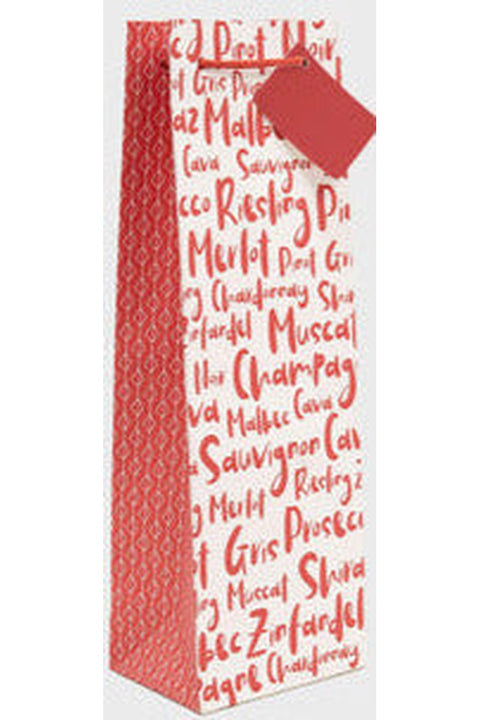 g Pinot Noir
t Gris Prosec
az Malbec
Cava Sauvignon
cco Riesling Pin
Merlot Pinot Gris
ng Chardonnay Shira
Zinfandel Muscat
Noir Champag
ava Malbec Cava
a Sauvignon Cav
g Merlot Riesling Z
t Gris Prosecc
ing Muscat Shiraz
lbec Zinfandel
pagne Chardonnay